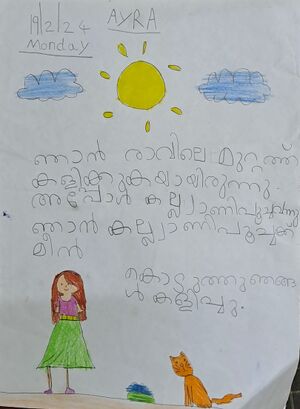 19/2/24
Monday
AYRA
ഞാൻ രാവിലെ മുറ്റത്ത്
കളിക്കുകയായിരുന്നു.
അപ്പോൾ കല്ല്യാണിപൂച്ചവന്നു
ഞാൻ കല്ല്യാണിപൂച്ചക്ക്
മീൻ
കൊടുത്തു ഞങ്ങ
ൾ കളിച്ചു.